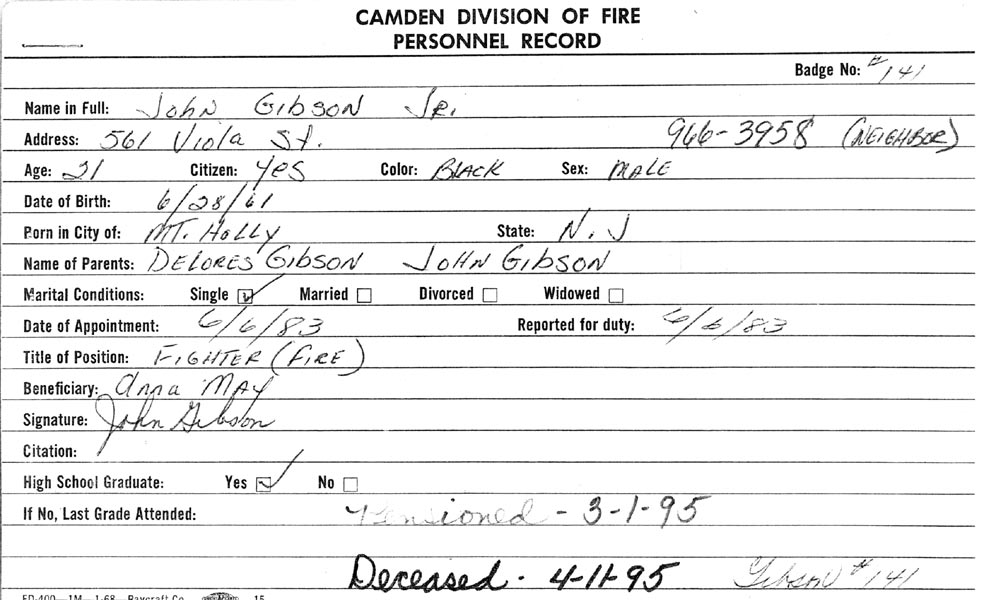 CAMDEN DIVISION OF FIRE
PERSONNEL RECORD
Badge No: #141
Name in Full: John Gibson Jr.
Address: 561 Viola St. 966-3958 (NEIGHBOR)
Age: 21 Citizen: Yes Color: BLACK Sex: MALE
Date of Birth: 6/28/61
Porn in City of: MT. HOLLY State: N.J
Name of Parents: DELORES GIBSON JOHN GIBSON
Marital Conditions: Single Married Divorced Widowed
Date of Appointment: 6/6/83 Reported for duty: 6/6/83
Title of Position: FIGHTER (FIRE)
Beneficiary: Anna MAY
Signature: John Gibson
Citation:
High School Graduate: Yes No
If No, Last Grade Attended: Pensioned - 3-1-95
Deceased - 4-11-95 Gibson #141
FD-400—1M—1-68—Raycraft Co. 15